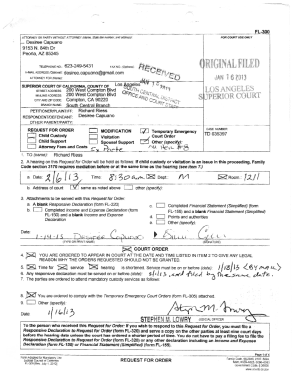 FL-300
ATTORNEY OR PARTY WITHOUT ATTORNEY (Name, State Bar number, and address):
FOR COURT USE ONLY
Desiree Capuano
9153 N. 84th Dr
Peoria, AZ 85345
TELEPHONE NO.: 623-249-5431
FAX NO. (Optional):
E-MAIL ADDRESS (Optional): desiree.capuano@gmail.com
ATTORNEY FOR (Name):
RECEIVED
JAN 15 2013
SOUTH CENTRAL DISTRICT
ORIGINAL FILED
JAN 16 2013
LOS ANGELES
SUPERIOR COURT
SUPERIOR COURT OF CALIFORNIA, COUNTY OF Los Angeles
STREET ADDRESS: 200 West Compton Blvd
MAILING ADDRESS: 200 West Compton Blvd
CITY AND ZIP CODE: Compton, CA 90220
BRANCH NAME: South Central Branch
PETITIONER/PLAINTIFF: Richard Riess
RESPONDENT/DEFENDANT: Desiree Capuano
OTHER PARENT/PARTY:
REQUEST FOR ORDER
MODIFICATION
Temporary Emergency Court Order
Child Custody
Visitation
Other (specify):
Child Support
Spousal Support
Attorney Fees and Costs
Ex Parte
CASE NUMBER:
1. TO (name): Richard Riess
2. A hearing on this Request for Order will be held as follows: If child custody or visitation is an issue in this proceeding, Family
Code section 3170 requires mediation before or at the same time as the hearing (see item 7.)
a. Date: 2/6/13 Time: 8:30am Dept.: M Room: 1211
b. Address of court same as noted above other (specify):
3. Attachments to be served with this Request for Order:
a. A blank Responsive Declaration (form FL-320)
b. Completed Income and Expense Declaration (form FL-150) and a blank Income and Expense Declaration
c. Completed Financial Statement (Simplified) (form FL-155) and a blank Financial Statement (Simplified)
d. Points and authorities
e. Other (specify):
Date: 1-14-13
Desiree Capuano
(TYPE OR PRINT NAME)
(SIGNATURE)
COURT ORDER
4. YOU ARE ORDERED TO APPEAR IN COURT AT THE DATE AND TIME LISTED IN ITEM 2 TO GIVE ANY LEGAL
REASON WHY THE ORDERS REQUESTED SHOULD NOT BE GRANTED.
5. Time for service hearing is shortened. Service must be on or before (date): 1/18/13
6. Any responsive declaration must be served on or before (date):
7. The parties are ordered to attend mandatory custody services as follows:
8. You are ordered to comply with the Temporary Emergency Court Orders (form FL-305) attached.
9. Other (specify):
Date: 1/16/13
STEPHEN M. LOWRY
JUDICIAL OFFICER
To the person who received this Request for Order: If you wish to respond to this Request for Order, you must file a
Responsive Declaration to Request for Order (form FL-320) and serve a copy on the other parties at least nine court days
before the hearing date unless the court has ordered a shorter period of time. You do not have to pay a filing fee to file the
Responsive Declaration to Request for Order (form FL-320) or any other declaration including an Income and Expense
Declaration (form FL-150) or Financial Statement (Simplified) (form FL-155).
REQUEST FOR ORDER